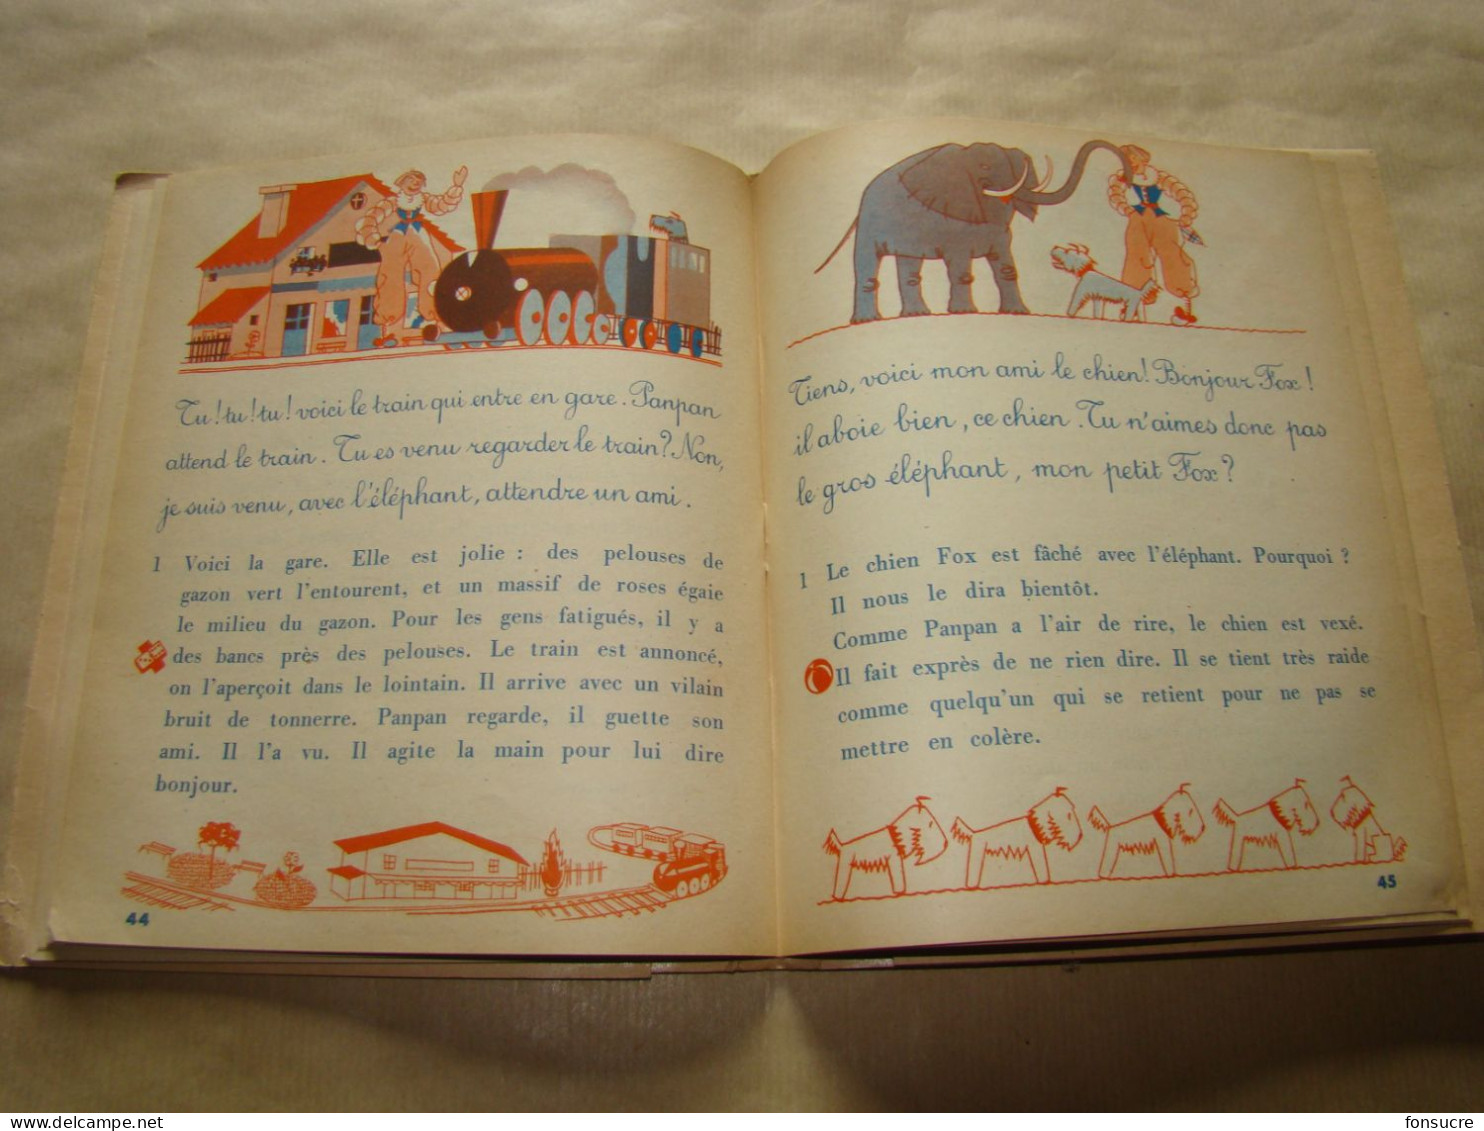 Tu! tu! tu! voici le train qui entre en gare. Panpan
attend le train. Tu es venu regarder le train? Non,
je suis venu, avec l'éléphant, attendre un ami.
1 Voici la gare. Elle est jolie : des pelouses de
gazon vert l'entourent, et un massif de roses égaie
le milieu du gazon. Pour les gens fatigués, il y a
des bancs près des pelouses. Le train est annoncé,
on l'aperçoit dans le lointain. Il arrive avec un vilain
bruit de tonnerre. Panpan regarde, il guette son
ami. Il l'a vu. Il agite la main pour lui dire
bonjour.
44
Tiens, voici mon ami le chien! Bonjour Fox!
il aboie bien, ce chien. Tu n'aimes donc pas
le gros éléphant, mon petit Fox?
1 Le chien Fox est fâché avec l'éléphant. Pourquoi ?
Il nous le dira bientôt.
Comme Panpan a l'air de rire, le chien est vexé.
Il fait exprès de ne rien dire. Il se tient très raide
comme quelqu'un qui se retient pour ne pas se
mettre en colère.
45
delcampe.net
fonsucre